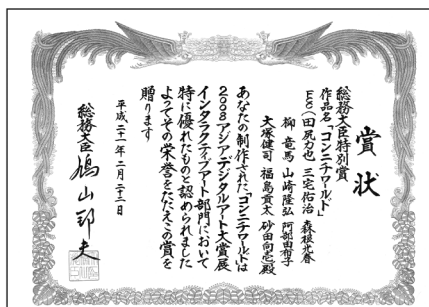 賞状
総務大臣特別賞
作品名「コンニチワールド」
E8C(田尻力也 三宅佑治 森根光春
柳竜馬 山崎隆弘 阿部由布子
大塚健司 福島貢太 砂田向壱)殿
あなたの制作された「コンニチワールド」は
2008アジアデジタルアート大賞展
インタラクティブアート部門において
特に優れたものと認められました
よってその栄誉をたたえこの賞を
贈ります
平成二十一年二月二十二日
総務大臣 鳩山邦夫